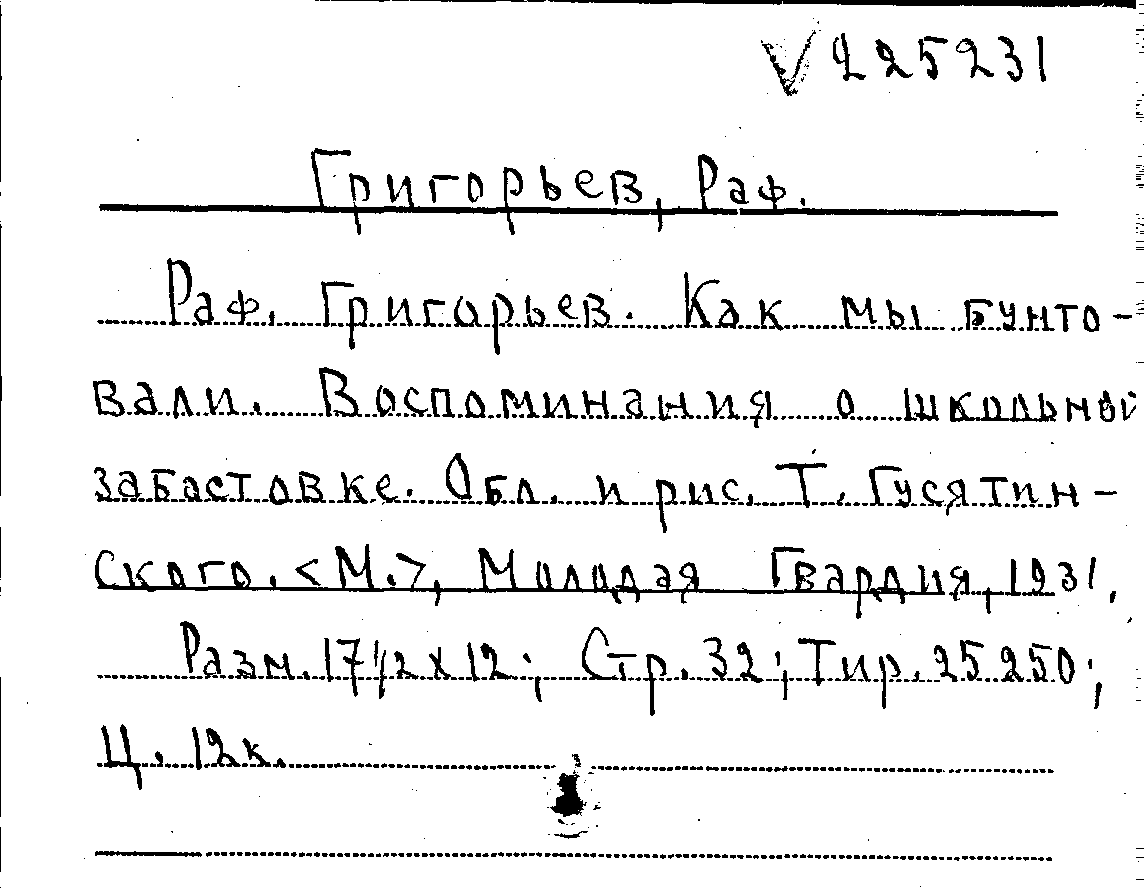 √ 225231
Григорьев, Раф.
Раф. Григорьев. Как мы бунто-
вали. Воспоминания о школьной
забастовке. Обл. и рис. Т. Гусятин-
ского. <М.>, Молодая Гвардия, 1931.
Разм. 17 1/2 x 12; Стр. 32; Тир. 25250;
Ц. 12к.